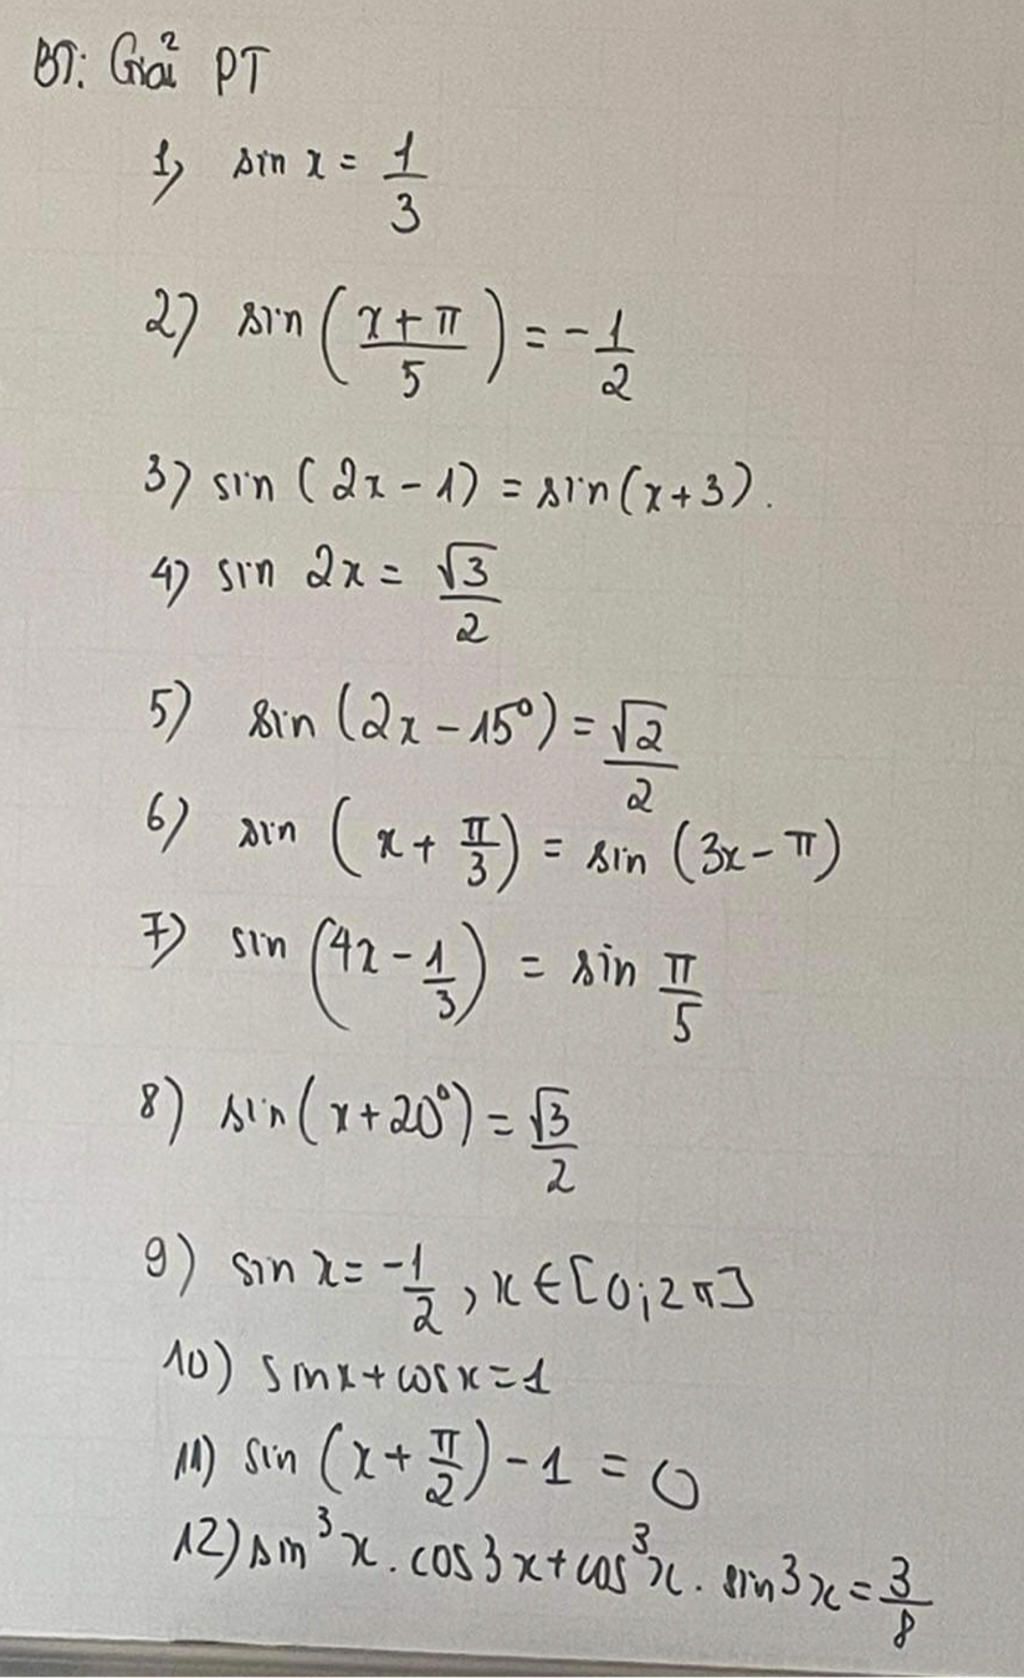 BT: Giải PT
1, sin x = 1/3
2) sin ((x + π)/5) = -1/2
3) sin (2x - 1) = sin (x + 3).
4) sin 2x = √3/2
5) sin (2x - 15°) = √2/2
6) sin (x + π/3) = sin (3x - π)
7) sin (4x - 1/3) = sin π/5
8) sin (x + 20°) = √3/2
9) sin x = -1/2, x ∈ [0; 2π]
10) sin x + cos x = 1
11) sin (x + π/2) - 1 = 0
12) sin³x . cos 3x + cos³x . sin 3x = 3/8